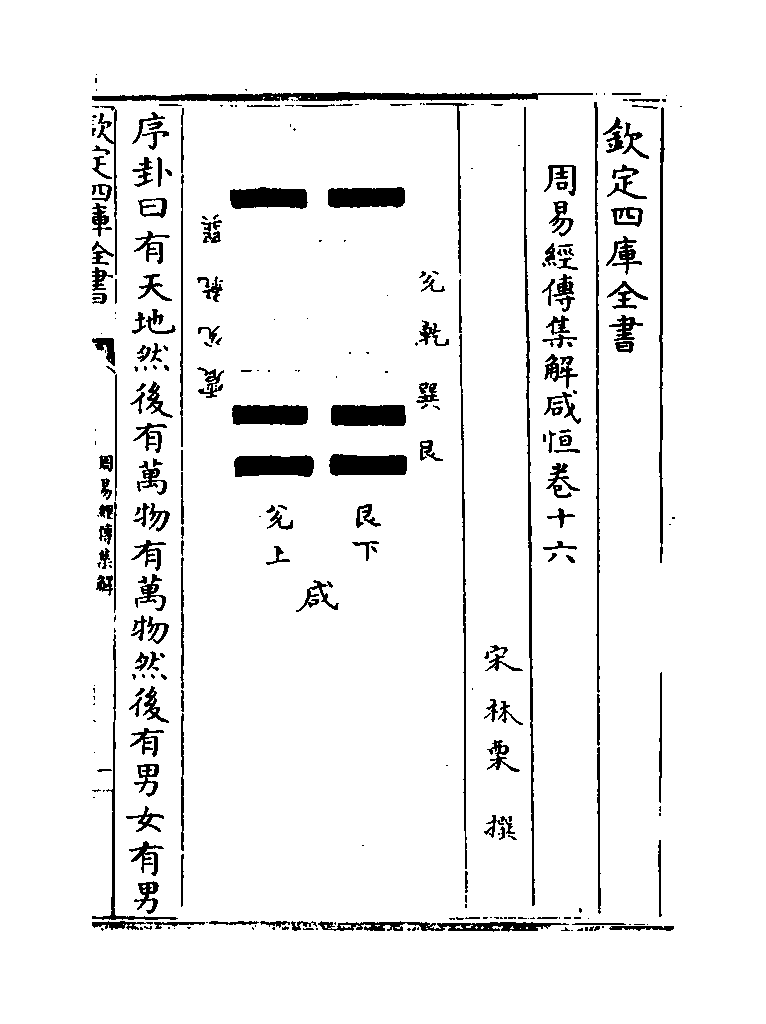 欽定四庫全書
周易經傳集解咸恒卷十六
宋林栗撰
兊乾巽艮
艮下
兊上
咸
巽乾兊震
序卦曰有天地然後有萬物有萬物然後有男女有男
欽定四庫全書
周易經傳集解
一